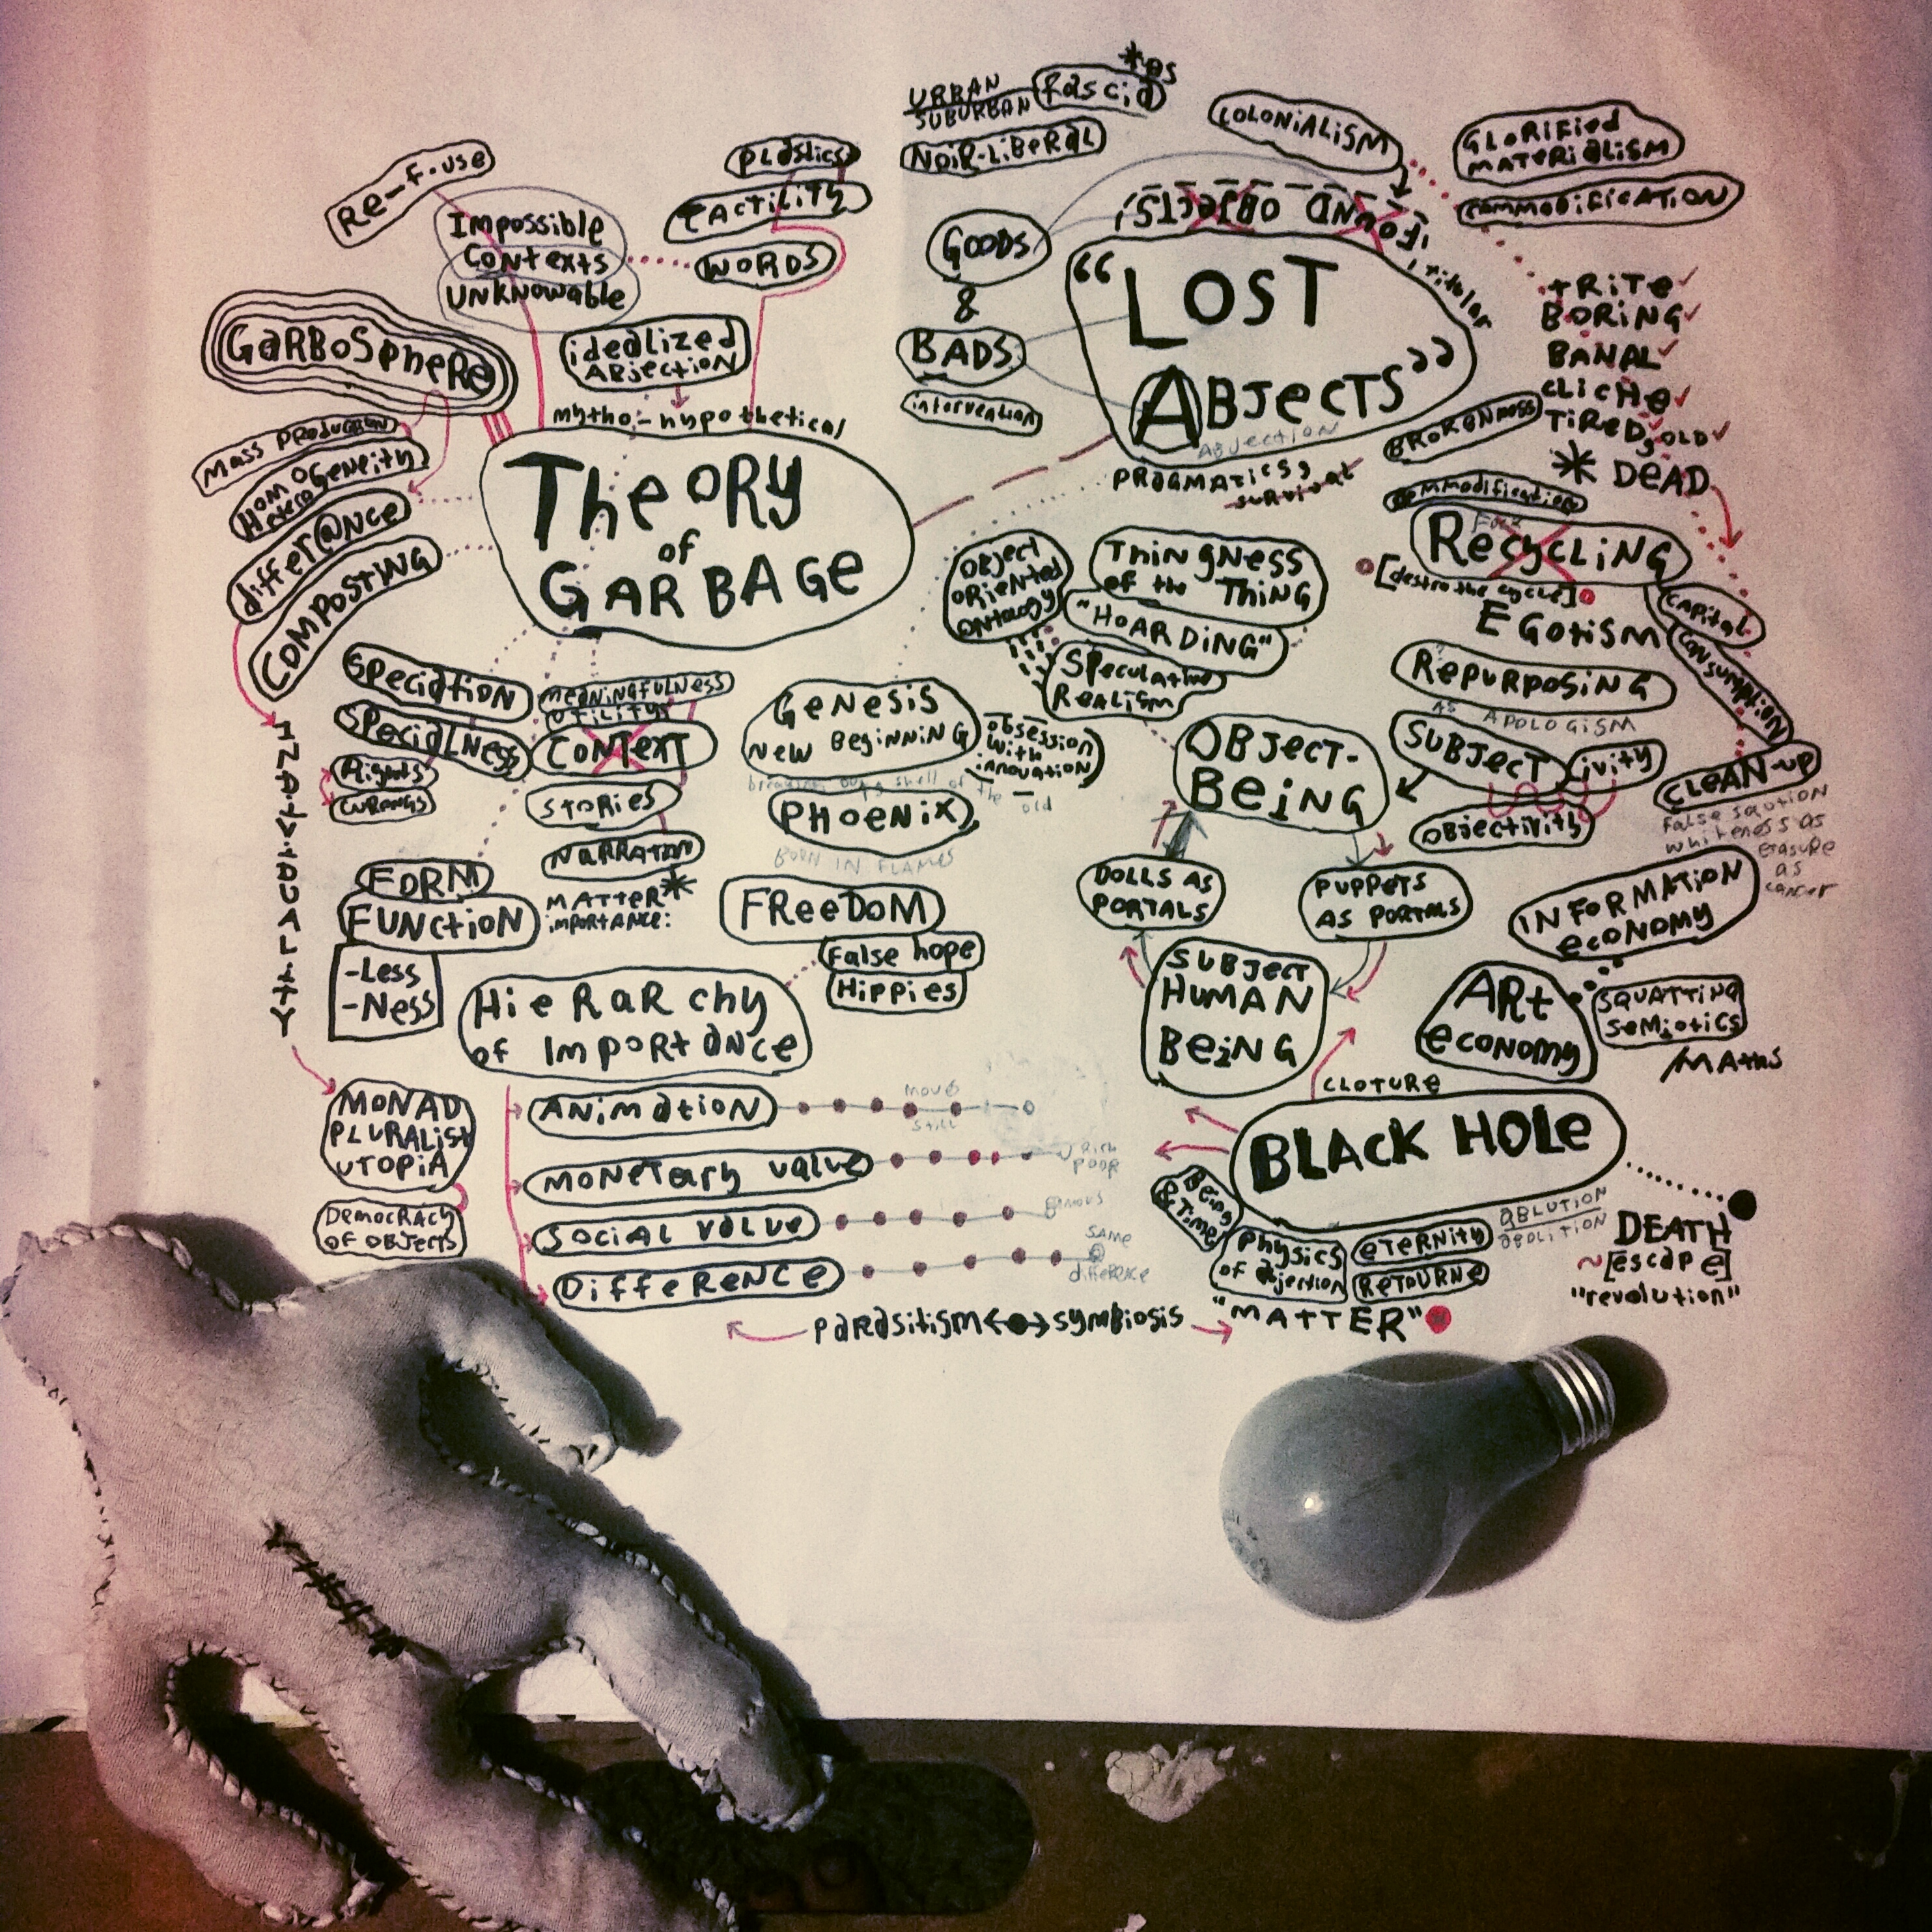 Re-f-use
Impossible
Contexts
Unknowable
Plastics
Tactility
Words
Garbosphere
idealized
Abjection
mytho-hypothetical
Theory
of
Garbage
Mass Production
Homo
Hetero
Geneity
differ@nce
Composting
INDIVIDUALITY
Speciation
Specialness
Rights
Wrongs
Meaningfulness
Utility
Context
Stories
Narration
MATTER*
importance:
Form
Function
-Less
-Ness
Hierarchy
of Importance
Monad
Pluralist
Utopia
Democracy
of Objects
Animation
move
still
Monetary value
Rich
Poor
Social value
Difference
SAME
difference
parasitism <-> symbiosis
Genesis
New Beginning
obsession
with
innovation
breaking out of shell of the old
Phoenix
BORN IN FLAMES
Freedom
False hope
Hippies
URBAN
SUBURBAN
fascia
*as
Noir-Liberal
Colonialism
Glorified
materialism
commodification
"FOUND OBJECTS"
Goods
&
Bads
intervention
"LOST
ABJECTS"
titular
Abjection
Pragmatics,
survival
Brokenness
TRITE
BORING
BANAL
CLICHE
TIRED, OLD
* DEAD
commodification
Recycling
[destro the cycle]
Egotism
Capital
Consumption
Repurposing
AS APOLOGISM
Subject
ivity
Objectivity
Clean-up
whiteness as
erasure
as
cancer
Object
Oriented
Ontology
Thingness
of the Thing
"HOARDING"
Speculative
Realism
Object-
Being
Dolls as
Portals
Puppets
as Portals
Subject
Human
Being
Information
economy
Art
economy
Squatting
Semiotics
/Maths
CLOTURE
BLACK HOLE
Being
& Time
Physics
of Abjection
Eternity
Retourne
ABLUTION
ABOLITION
DEATH
~[escape]
"revolution"
"MATTER"